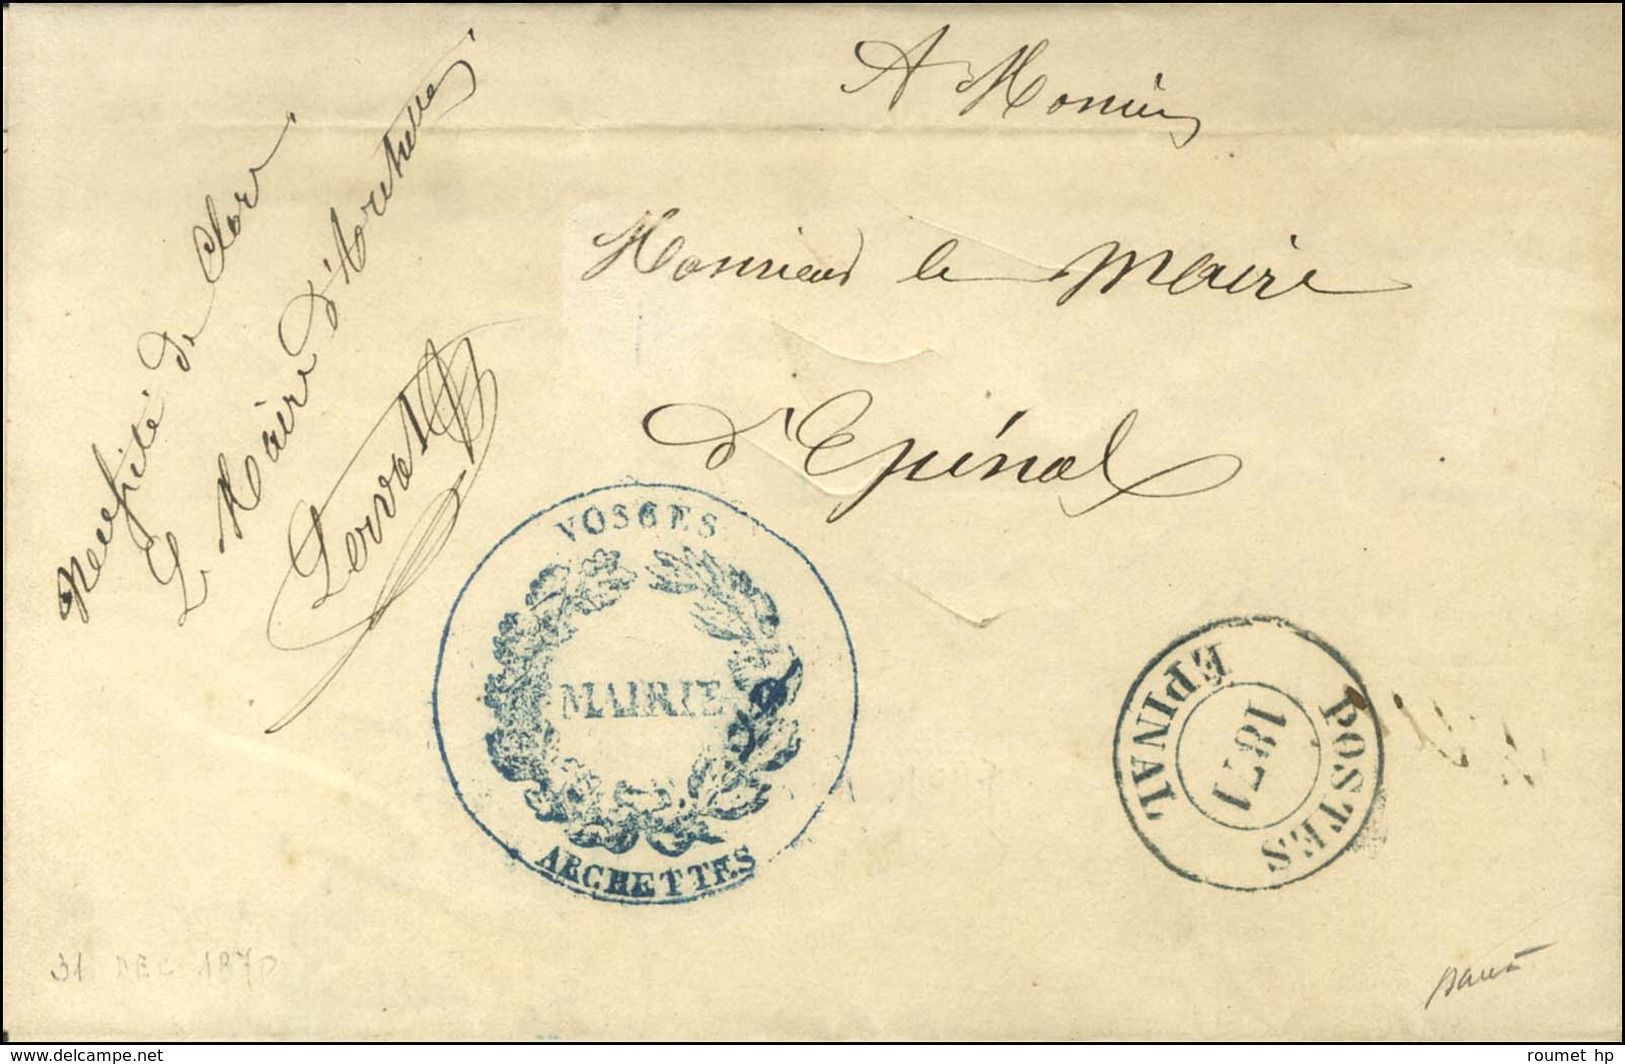 A Monsieur
Monsieur le Maire
d'Epinal
Nécessité de Clore
Le Maire d'Archettes
VOSGES
MAIRIE
ARCHETTES
EPINAL
1871
POSTES
31 DEC 1870
delcampe.net
roumet_hp